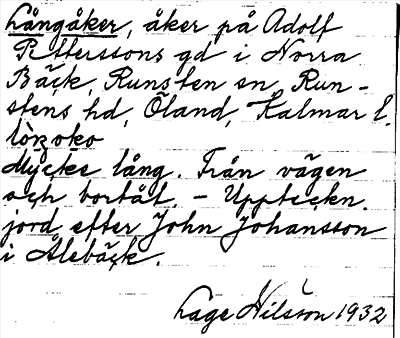 Långåker, åker på Adolf
Petterssons gd i Norra
Bäck, Runsten sn, Run-
stens hd, Öland, Kalmar l.
Mycke lång. Från vägen
och bortåt. - Uppteckn.
jord efter John Johansson
i Ålebäck.
Lage Nilsson 1932